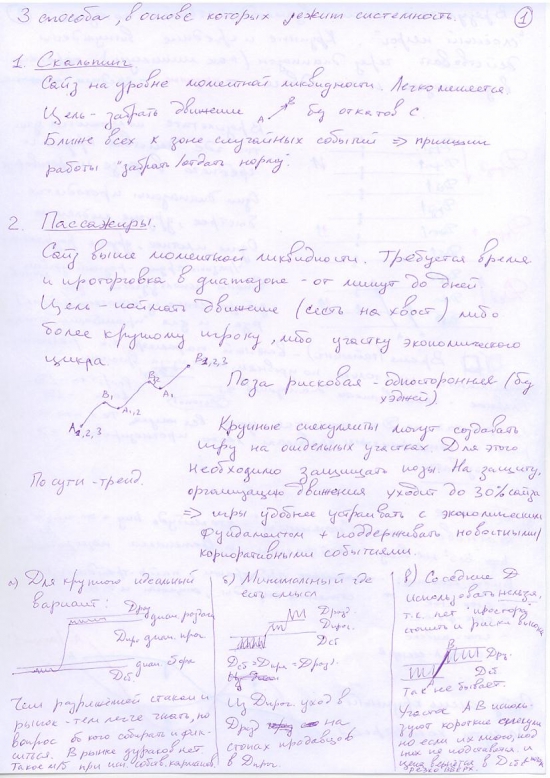 3 способа, в основе которых лежит системность
1
1. Скальпинг
Сайз на уровне моментной ликвидности. Легко меняется
Цель - забрать движение A B без откатов C
Ближе всех к зоне случайных событий => принцип
работы "забрать/отдать норму".
2. Пассажиры.
Сайз выше моментной ликвидности. Требуется время
и проторговка в диапазоне - от минут до дней
Цель - поймать движение (сесть на хвост) либо
более крупному игроку, либо участку экономического
цикра.
Поза рисковая - односторонняя (без
хэджей)
A1,2,3 B1 A1,2 B2 A1 B1,2,3
По сути - тренд.
Крупные спекулянты могут создавать
игру на отдельных участках. Для этого
необходимо защищать позы. На защиту,
организацию движения уходит до 30% сайза
=> игры удобнее устраивать с экономическим
фундаментом + поддерживать новостными/
корпоративными событиями.
а) Для крупного идеальный
вариант:
Dрод
диап. раздачи
Dпро диап. прог
диап. сбора
Dсб
Чем разряжённой стакан и
рынок - тем легче гнать, но
вопрос об кого собирать и фик-
ситься. В рынке дураков нет.
Такое м/б при
б) Минимальный где
есть смысл
Dразд.
Dпрог.
Dсб
Из Dпрог. уход в
Dразд на
стопах продавцов
в Dпрог.
в) Соседние D
использовать нельзя,
т.к. нет "простора"
и риски
B
Dсб
Так не бывает.
Участок AB
короткие
но если их много, над
них не подставят и
цена